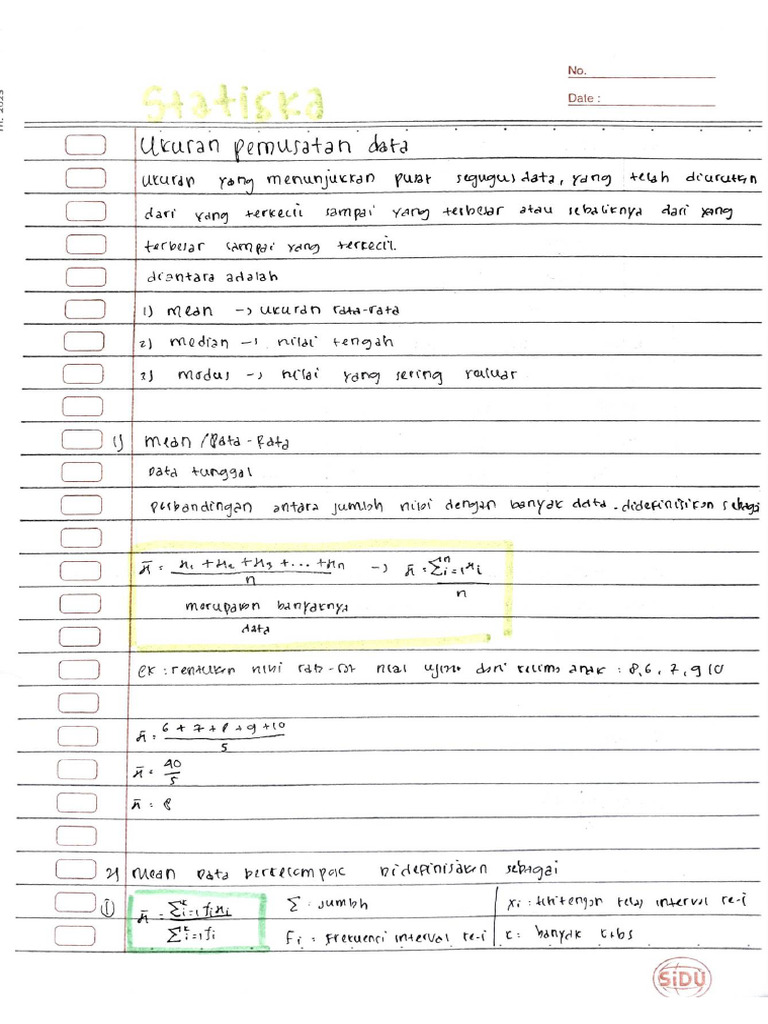 No.
Date :
Statiska
Ukuran pemusatan data
Ukuran yang menunjukkan pusat segugus data, yang telah diurutkan
dari yang terkecil sampai yang terbesar atau sebaliknya dari yang
terbesar sampai yang terkecil.
diantara adalah
1) mean -> ukuran rata-rata
2) median -> nilai tengah
3) modus -> nilai yang sering keluar
1) mean / Rata-Rata
Data tunggal
perbandingan antara jumlah nilai dengan banyak data. didefinisikan sebagai
x̄ = x₁ + x₂ + x₃ + ... + xₙ / n -> x̄ = Σⁿi=1 xi / n
merupakan banyaknya
data
ex : tentukan nilai rata-rat nilai ujian dari kelima anak : 8, 6, 7, 9 10
x̄ = 6 + 7 + 8 + 9 + 10 / 5
x̄ = 40 / 5
x̄ = 8
2) Mean Data berkelompok Didefinisikan sebagai
① x̄ = Σᵏi=1 fi xi / Σᵏi=1 fi
Σ : jumlah
fi : frekuensi interval ke-i
xi : titik tengah kelas interval ke-i
k : banyak kelas
SiDU